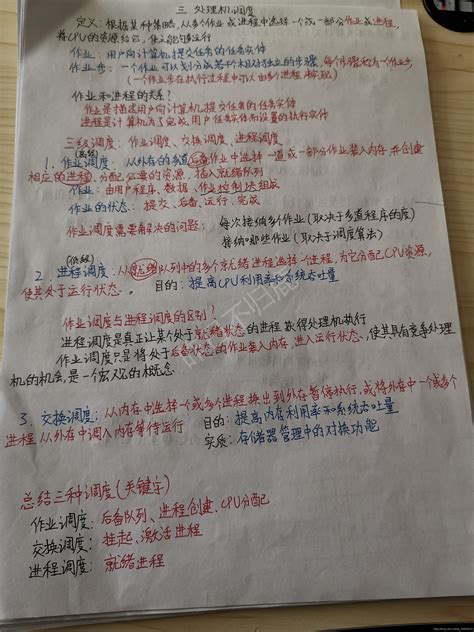 三 处理机调度
定义: 根据某种策略, 从多个作业或进程中选择一个或一部分作业或进程,
将CPU的资源给它, 使之能够运行
作业: 用户向计算机提交任务的任务实体
作业步: 一个作业可以划分成若干个相对独立的步骤, 每个步骤称为一个作业步
(一个作业在执行过程中可以由多个进程来实现)
作业和进程的关系?
作业是描述用户向计算机提交任务的任务实体
进程是计算机为了完成用户任务实体而设置的执行实体
三级调度: 作业调度、交换调度、进程调度
(高级)
1. 作业调度: 从外存的多道后备作业中选择一道或一部分作业装入内存, 并创建
相应的进程, 分配必要的资源, 插入就绪队列
作业: 由用户程序、数据、作业控制块组成
作业的状态: 提交、后备、运行、完成
作业调度需要解决的问题: 每次接纳多个作业 (取决于多道程序的度)
接纳哪些作业 (取决于调度算法)
(低级)
2. 进程调度: 从就绪队列中的多个就绪进程选择一个进程, 为它分配CPU资源,
使其处于运行状态. 目的: 提高CPU利用率和系统吞吐量
作业调度与进程调度的区别?
进程调度是真正让某个处于就绪状态的进程获得处理机执行
作业调度只是将处于后备状态的作业装入内存, 进入运行状态, 使其具有竞争处理
机的机会, 是一个宏观的概念
3. 交换调度: 从内存中选择一个或多个进程换出到外存暂停执行, 或将外存中一个或多个
进程从外存中调入内存等待运行 目的: 提高内存利用率和系统吞吐量
实质: 存储器管理中的对换功能
总结三种调度(关键字)
作业调度: 后备队列、进程创建、CPU分配
交换调度: 挂起、激活进程
进程调度: 就绪进程